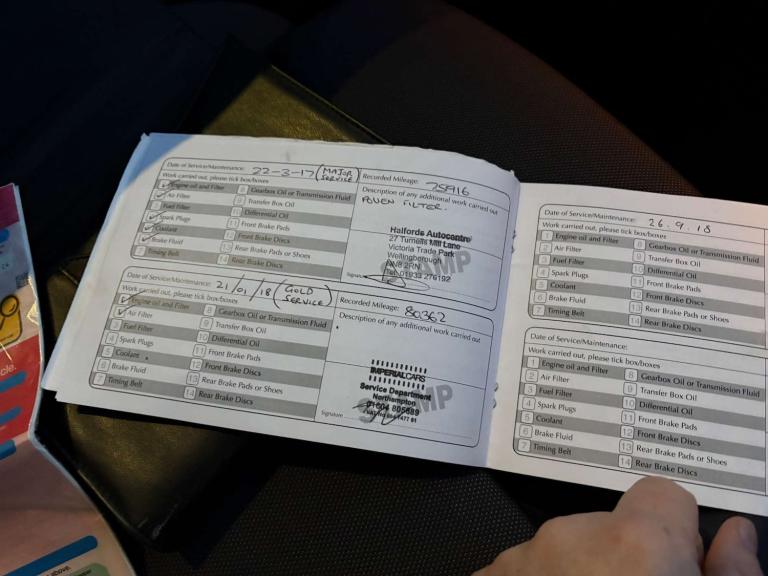 Date of Service/Maintenance: 22-3-17 (MAJOR SERVICE) Recorded Mileage: 75916
Work carried out, please tick box/boxes
Description of any additional work carried out
POLLEN FILTER.
1 Engine oil and Filter 8 Gearbox Oil or Transmission Fluid
2 Air Filter 9 Transfer Box Oil
3 Fuel Filter 10 Differential Oil
4 Spark Plugs 11 Front Brake Pads
5 Coolant 12 Front Brake Discs
6 Brake Fluid 13 Rear Brake Pads or Shoes
7 Timing Belt 14 Rear Brake Discs
Halfords Autocentre
27 Turnells Mill Lane
Victoria Trade Park
Wellingborough
NN8 2RN
Tel: 01933 276192
Signature
STAMP
Date of Service/Maintenance: 21/01/18 (GOLD SERVICE) Recorded Mileage: 80362
Work carried out, please tick box/boxes
Description of any additional work carried out
1 Engine oil and Filter 8 Gearbox Oil or Transmission Fluid
2 Air Filter 9 Transfer Box Oil
3 Fuel Filter 10 Differential Oil
4 Spark Plugs 11 Front Brake Pads
5 Coolant 12 Front Brake Discs
6 Brake Fluid 13 Rear Brake Pads or Shoes
7 Timing Belt 14 Rear Brake Discs
IMPERIAL CARS
Service Department
Northampton
01604 805689
Signature
STAMP
Date of Service/Maintenance: 26.9.18
Work carried out, please tick box/boxes
1 Engine oil and Filter 8 Gearbox Oil or Transmission Fluid
2 Air Filter 9 Transfer Box Oil
3 Fuel Filter 10 Differential Oil
4 Spark Plugs 11 Front Brake Pads
5 Coolant 12 Front Brake Discs
6 Brake Fluid 13 Rear Brake Pads or Shoes
7 Timing Belt 14 Rear Brake Discs
Date of Service/Maintenance:
Work carried out, please tick box/boxes
1 Engine oil and Filter 8 Gearbox Oil or Transmission Fluid
2 Air Filter 9 Transfer Box Oil
3 Fuel Filter 10 Differential Oil
4 Spark Plugs 11 Front Brake Pads
5 Coolant 12 Front Brake Discs
6 Brake Fluid 13 Rear Brake Pads or Shoes
7 Timing Belt 14 Rear Brake Discs
cle.
above.